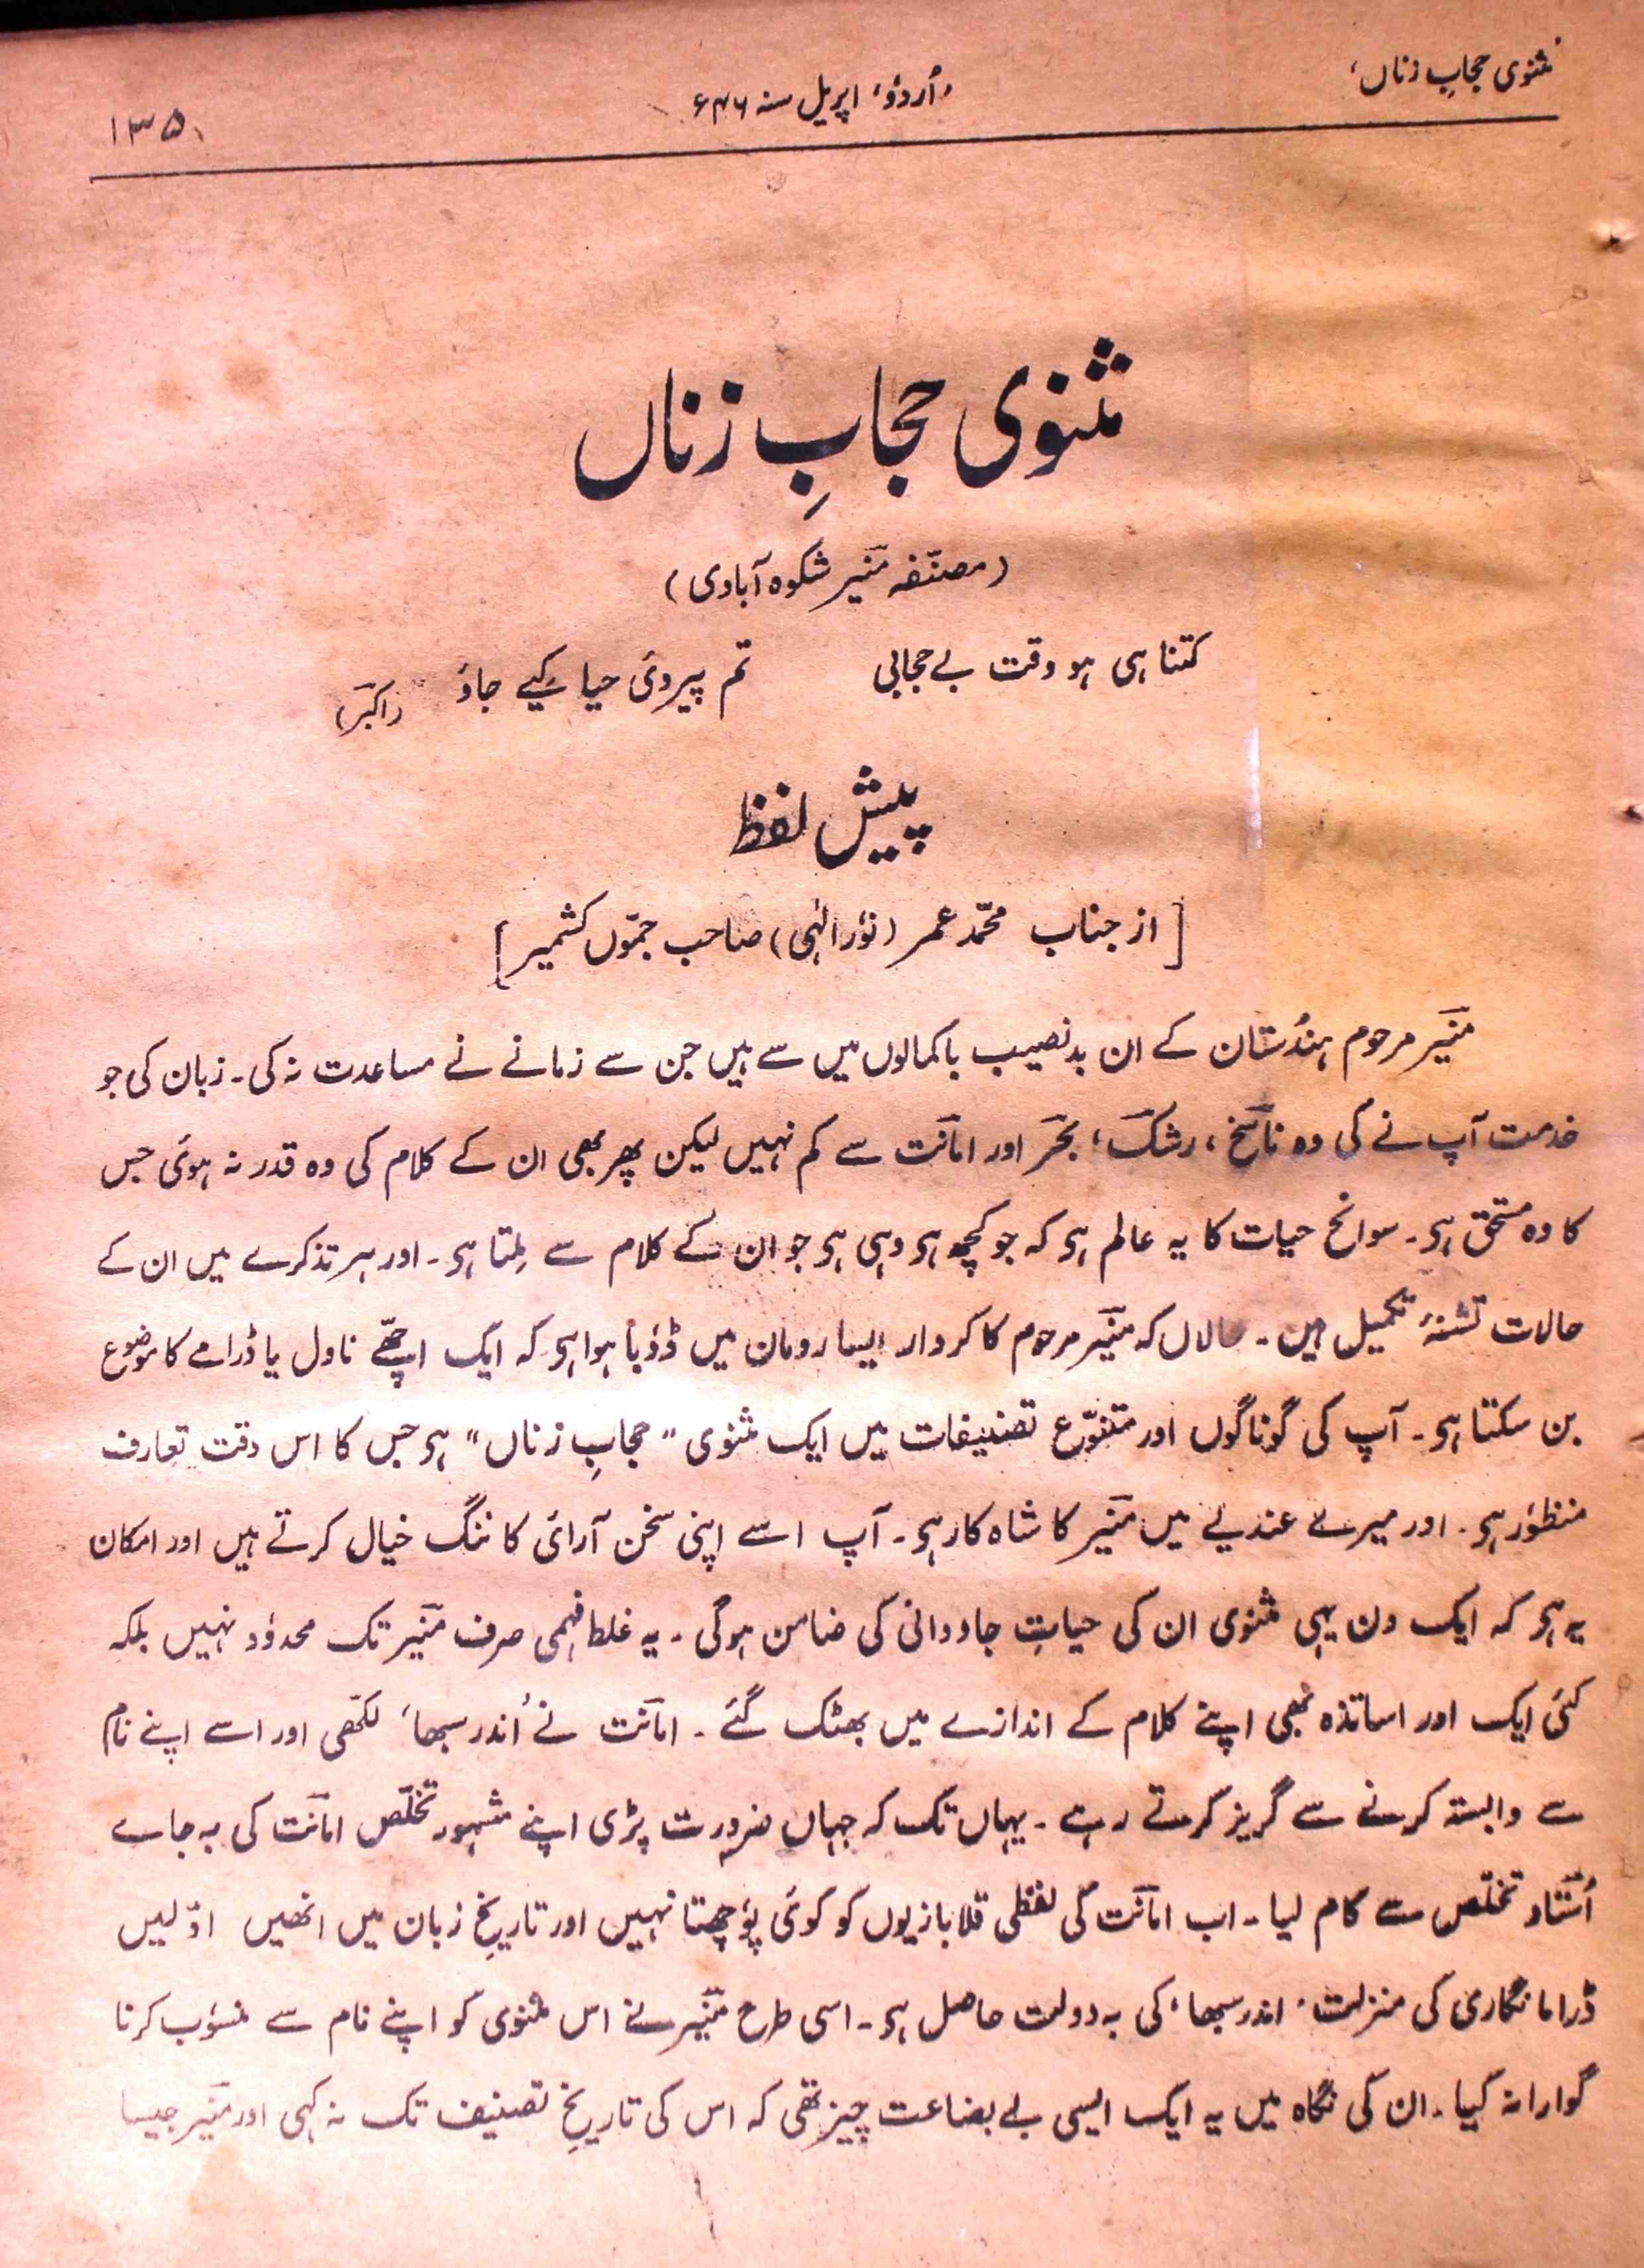 مثنوی حجابِ زناں،
'اُردؤ' اپریل سنہ ۴۶ء
۱۳۵
مثنوی حجابِ زناں
(مصنّفہ منیر شکوہ آبادی)
کتنا ہی ہو وقت بے حجابی تم پیرویٔ حیا کیے جاؤ (اکبر)
پیش لفظ
[از جناب محمّد عمر (نوٗر الٰہی) صاحب جمّوں کشمیر]
منیر مرحوم ہندُستان کے ان بدنصیب باکمالوں میں سے ہیں جن سے زمانے نے مساعدت نہ کی۔ زبان کی جو
خدمت آپ نے کی وہ ناسخ، رشک، بحر اور امانت سے کم نہیں لیکن پھر بھی ان کے کلام کی وہ قدر نہ ہوئی جس
کا وہ مستحق ہی۔ سوانح حیات کا یہ عالم ہی کہ جو کچھ ہی وہی ہی جو ان کے کلام سے مِلتا ہی۔ اور ہر تذکرے میں ان کے
حالات تشنۂ تکمیل ہیں۔ حالاں کہ منیر مرحوم کا کردار ایسا رومان میں ڈوٗبا ہوا ہی کہ ایک اچھّے ناول یا ڈرامے کا موضوع
بن سکتا ہی۔ آپ کی گوناگوں اور متنوّع تصنیفات میں ایک مثنوی "حجابِ زناں" ہی جس کا اس وقت تعارف
منظوٗر ہی۔ اور میرے عندیے میں منیر کا شاہ کار ہی۔ آپ اسے اپنی سخن آرائی کا ننگ خیال کرتے ہیں اور امکان
یہ ہی کہ ایک دن یہی مثنوی ان کی حیاتِ جاودانی کی ضامن ہوگی۔ یہ غلط فہمی صرف منیر تک محدوٗد نہیں بلکہ
کئی ایک اور اساتذہ بھی اپنے کلام کے اندازے میں بھٹک گئے۔ امانت نے 'اندر سبھا' لکھّی اور اسے اپنے نام
سے وابستہ کرنے سے گریز کرتے رہے۔ یہاں تک کہ جہاں ضروٗرت پڑی اپنے مشہور تخلّص امانت کی بہ جاے
اُستاد تخلّص سے کام لیا۔ اب امانت کی لفظی قلابازیوں کو کوئی پوٗچھتا نہیں اور تاریخِ زبان میں انھیں اوّلیں
ڈراما نگاری کی منزلت 'اندر سبھا' کی بہ دولت حاصل ہی۔ اسی طرح منیر نے اس مثنوی کو اپنے نام سے منسوٗب کرنا
گوارا نہ کیا۔ ان کی نگاہ میں یہ ایک ایسی بے بضاعت چیز تھی کہ اس کی تاریخِ تصنیف تک نہ کہی اور منیر جیسا